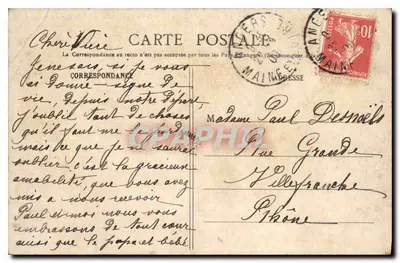 CARTE POSTALE
La Correspondance au recto n'est pas acceptée par tous les pays
CORRESPONDANCE
ADRESSE
ANGERS
MAINE
ANGERS
MAINE
10
Je ne sais si je vous
ai donné signe de
vie, depuis notre départ
j'oublie tant de choses
qu'il faut me
mais ce que je ne saurai
oublier c'est la gracieuse
amabilité, que vous avez
mis a nous recevoir
Paul et moi nous vous
embrassons de tout cœur
ainsi que le papa et bébé
Madame Paul Desnoëls
Rue Grande
Villefranche
Rhône
CPRHPA